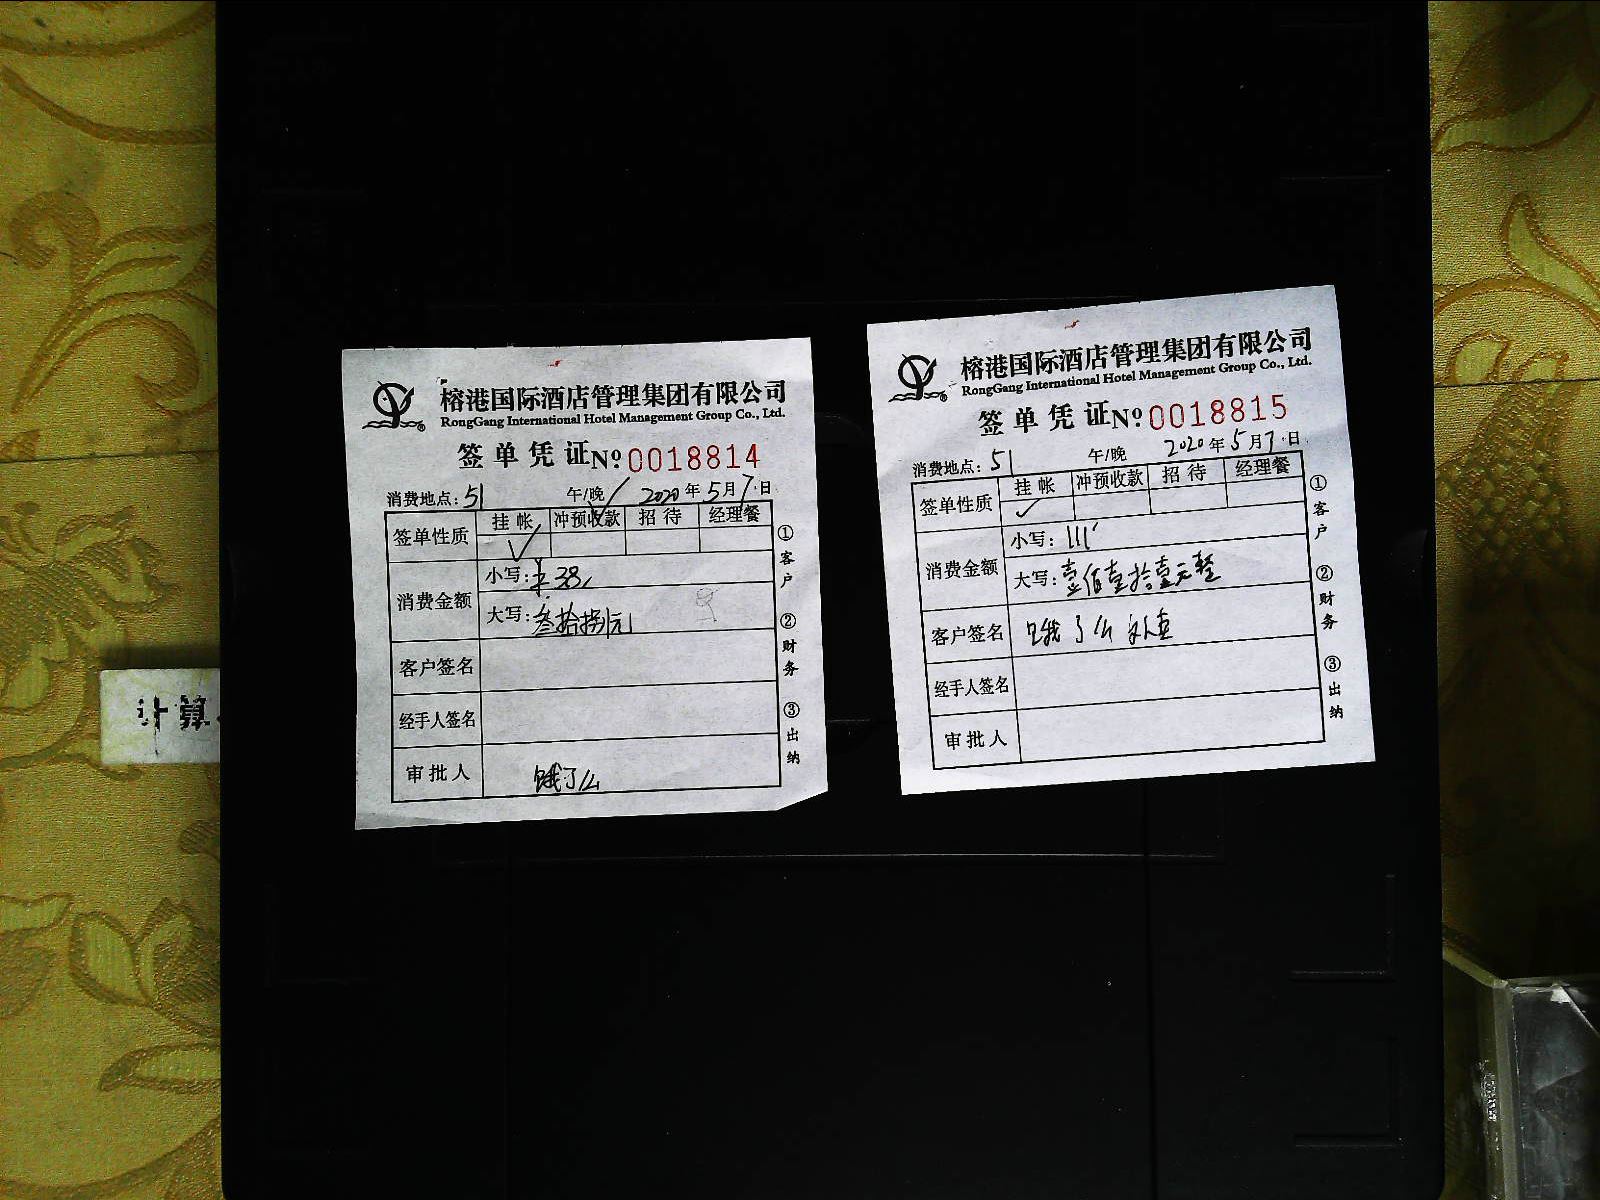 榕港国际酒店管理集团有限公司
RongGang International Hotel Management Group Co., Ltd.
签单凭证 No 0018814
消费地点: 51 午/晚 2020年5月7日
签单性质 挂帐 冲预收款 招待 经理餐
✓
消费金额 小写: ¥38
大写: 叁拾捌元
客户签名
经手人签名
审批人 饿了么
①客户 ②财务 ③出纳
榕港国际酒店管理集团有限公司
RongGang International Hotel Management Group Co., Ltd.
签单凭证 No 0018815
消费地点: 51 午/晚 2020年5月7日
签单性质 挂帐 冲预收款 招待 经理餐
✓
消费金额 小写: 111
大写: 壹佰壹拾壹元整
客户签名 饿了么
经手人签名
审批人
①客户 ②财务 ③出纳
计算